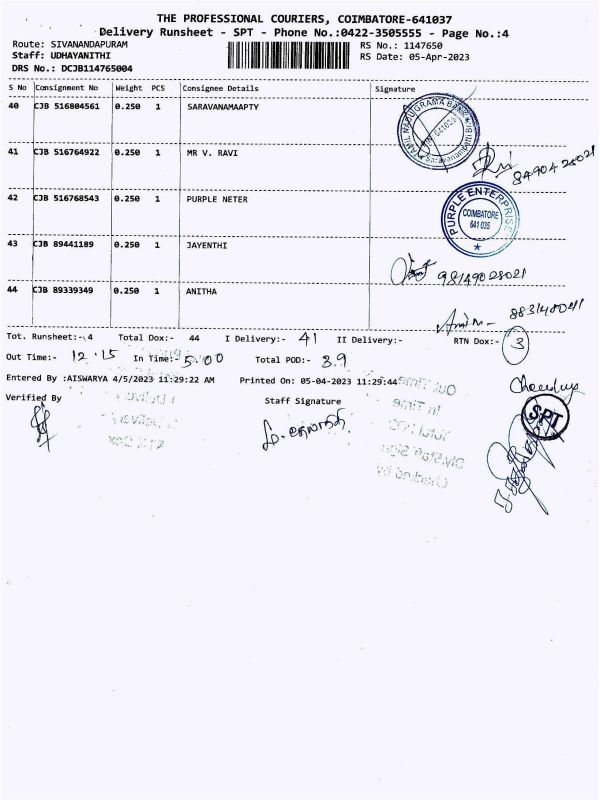 THE PROFESSIONAL COURIERS, COIMBATORE-641037
Delivery Runsheet - SPT - Phone No.:0422-3505555 - Page No.:4
Route: SIVANANDAPURAM RS No.: 1147650
Staff: UDHAYANITHI RS Date: 05-Apr-2023
DRS No.: DCJB114765004
S No Consignment No Weight PCS Consignee Details Signature
40 CJB 516804561 0.250 1 SARAVANAMAAPTY
41 CJB 516764922 0.250 1 MR V. RAVI
42 CJB 516768543 0.250 1 PURPLE NETER
PURPLE ENTERPRISE
COIMBATORE
641 035
43 CJB 89441189 0.250 1 JAYENTHI
98149028021
44 CJB 89339349 0.250 1 ANITHA
Tot. Runsheet:- 4 Total Dox:- 44 I Delivery:- 41 II Delivery:- RTN Dox:- 3
Out Time:- 12.15 In Time:- 5.00 Total POD:- 39
Entered By :AISWARYA 4/5/2023 11:29:22 AM Printed On: 05-04-2023 11:29:44
Verified By Staff Signature
SPT